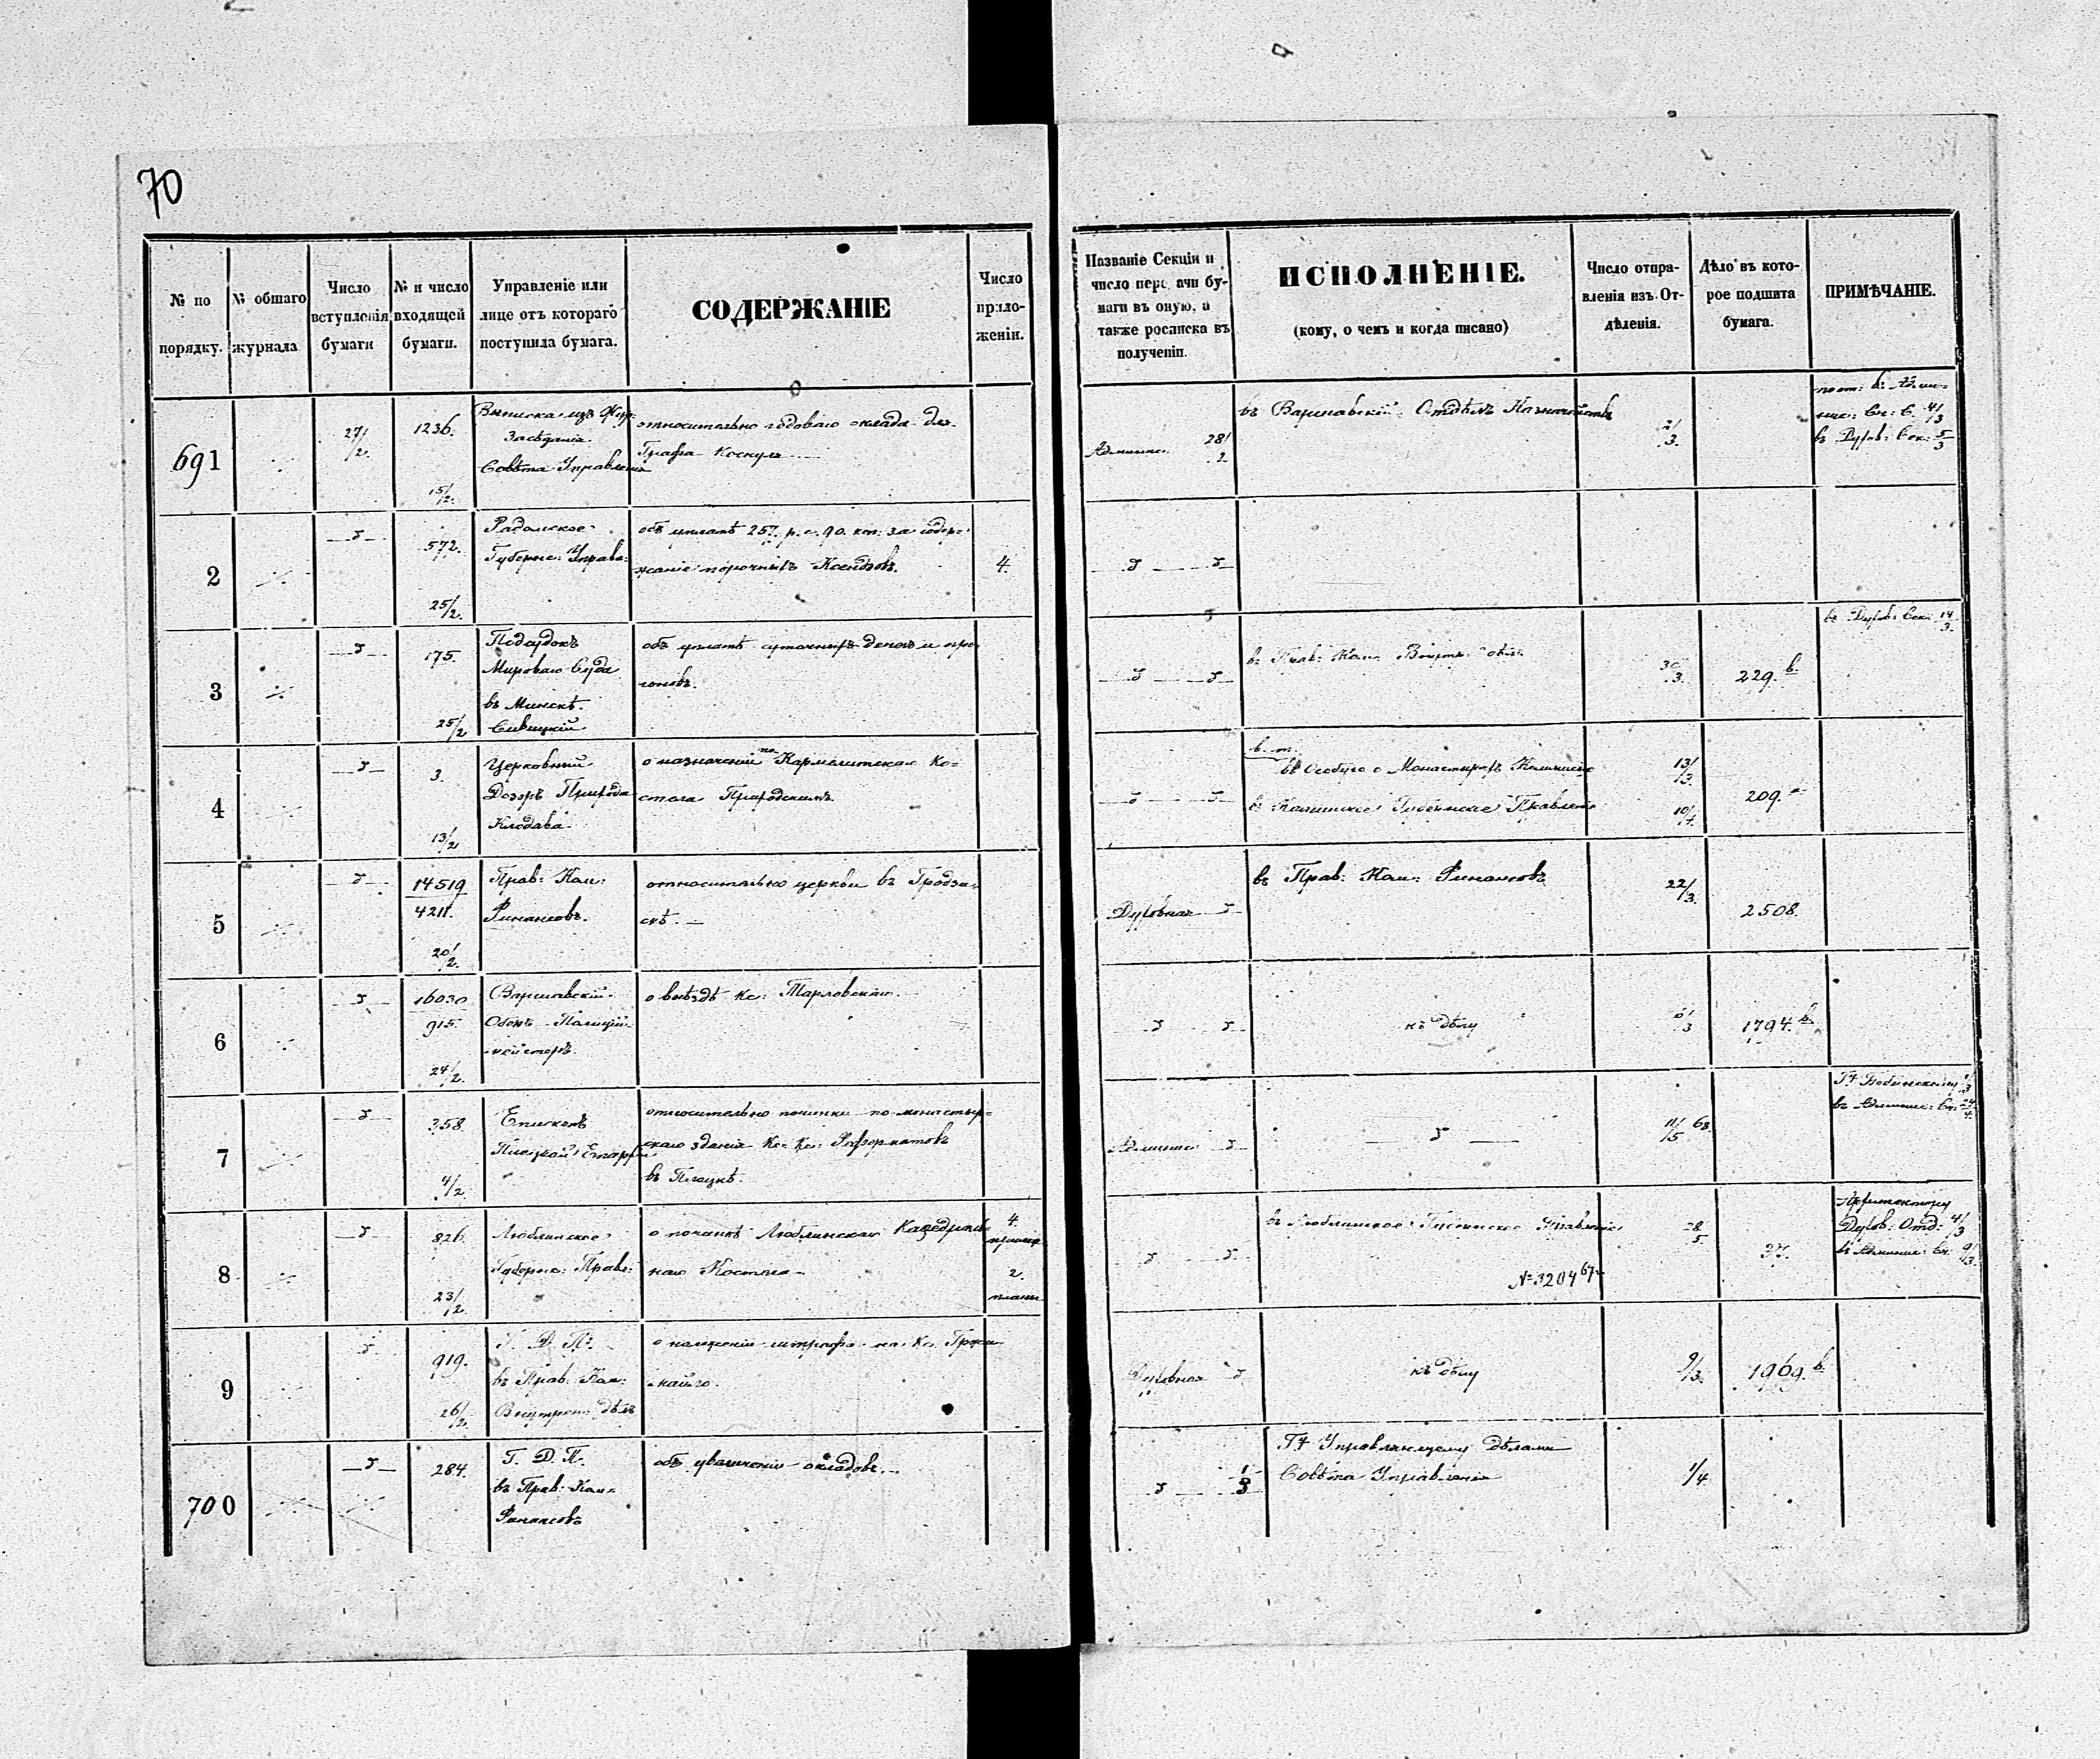 70
№ по порядку.
№ общаго журнала
Число вступленія бумаги
№ и число входящей бумаги.
Управленіе или лице отъ котораго поступила бумага.
СОДЕРЖАНІЕ
Число приложеній.
Названіе Секціи и число передачи бумаги въ оную, а также росписка въ полученіи.
ИСПОЛНЕНІЕ.
(кому, о чемъ и когда писано)
Число отправленія изъ Отдѣленія.
Дѣло въ которое подшита бумага.
ПРИМѢЧАНІЕ.
691
27/2.
1236.
15/2.
Выписка изъ Жур:
Засѣданія
Совѣта Управленія
относительно годоваго оклада для
Графа Коскуль
Админис. 28/2
въ Варшавскій Отдѣлъ Казначейства
2/3.
въ Духов: Сек: 5/3
2
572.
25/2.
Радомское
Губернс: Управл:
объ уплатѣ 257. р. с. 90. коп: за содер-
жаніе порочныхъ Ксендзовъ.
4.
3
175.
25/2
Подсудокъ
Мироваго Суда
въ Минскѣ.
Савицкій
объ уплатѣ суточныхъ денегъ и про-
гоновъ.
въ Прав: Ком: Внутр:
30/3.
229. в.
въ Духов: Сек: 14/3.
4
3.
13/2
Церковный
Дозоръ Прихода
Клодава
о назначеніи по Кармелитскаго Ко-
стела Приходскимъ.
въ Особую о Монастыряхъ Коммисію
въ Калишское Губернское Правленіе
13/3
10/4.
209.
5
14519
4211.
20/2.
Прав: Ком:
Финансовъ.
относительно церкви въ Гродзи-
скѣ.
Духовная
въ Прав: Ком: Финансовъ
22/3.
2508.
6
16030
915.
24/2.
Варшавскій
Оберъ-Полицій-
мейстеръ.
о выѣздѣ Кс: Тарловскаго.
къ дѣлу
1794. в.
7
358.
4/2
Епископъ
Плоцкой Епархіи
относительно починки по-монастыр-
скаго зданія Кс: Кс: Реформатовъ
въ Плоцкѣ.
Админис
11/5 68.
въ Админис: Сек: 24/4.
8
826.
23/2.
Люблинское
Губернс: Правл:
о починкѣ Люблинскаго Каѳедраль-
наго Костела
4.
2.
планы
въ Люблинское Губернское Правленіе
№ 3204 67
28/5
37.
Архитектору
Духов: Отд: 4/3
въ Админис: Сек: 9/3.
9
919.
26/2.
Г. Д. П.
въ Прав: Ком:
Внутрен: дѣлъ
о наложеніи штрафа на Кс.
Духовная
къ дѣлу
9/3.
1969. в.
700
284.
Г. Д. П.
въ Прав: Ком:
Финансовъ
объ увеличеніи окладовъ.
1/3
Гу Управляющему дѣлами
Совѣта Управленія
1/4